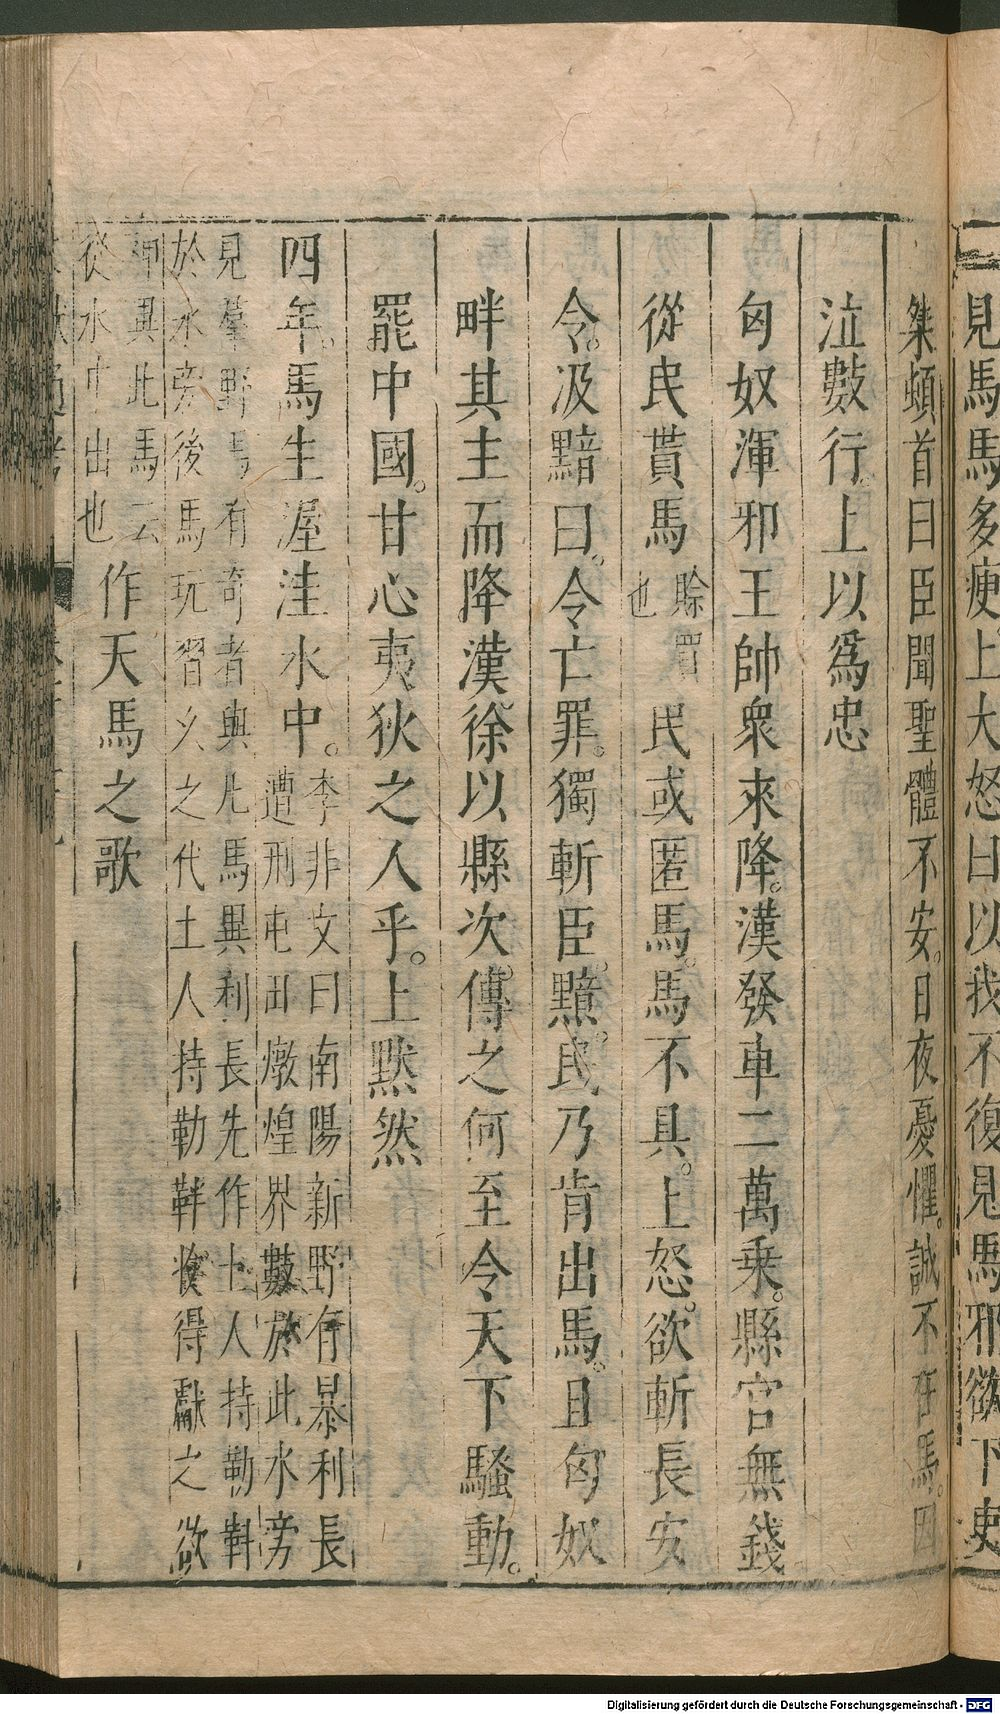 見馬馬多瘦上大怒曰以我不復見馬邪欲下吏
桀頓首曰臣聞聖體不安。日夜憂懼。誠不在馬。因
泣數行。上以爲忠
匈奴渾邪王帥衆來降。漢發車二萬乘。縣官無錢
從民貰馬
賒買
也
民或匿馬。馬不具。上怒。欲斬長安
令。汲黯曰。令亡罪。獨斬臣。黯。民乃肯出馬。且匈奴
畔其主而降漢。徐以縣次。傳之何至令天下騷動。
罷中國。甘心夷狄之人乎。上默然
四年。馬生渥洼水中。
李非文曰南陽新野有暴利長
遭刑屯田燉煌界數於此水旁
見羣野馬有奇者與凡馬異利長先作土人持勒靽
於水旁後馬玩習久之代土人持勒靽收得獻之欲
神異此馬云
從水中出也
作天馬之歌
Digitalisierung gefördert durch die Deutsche Forschungsgemeinschaft - DFG